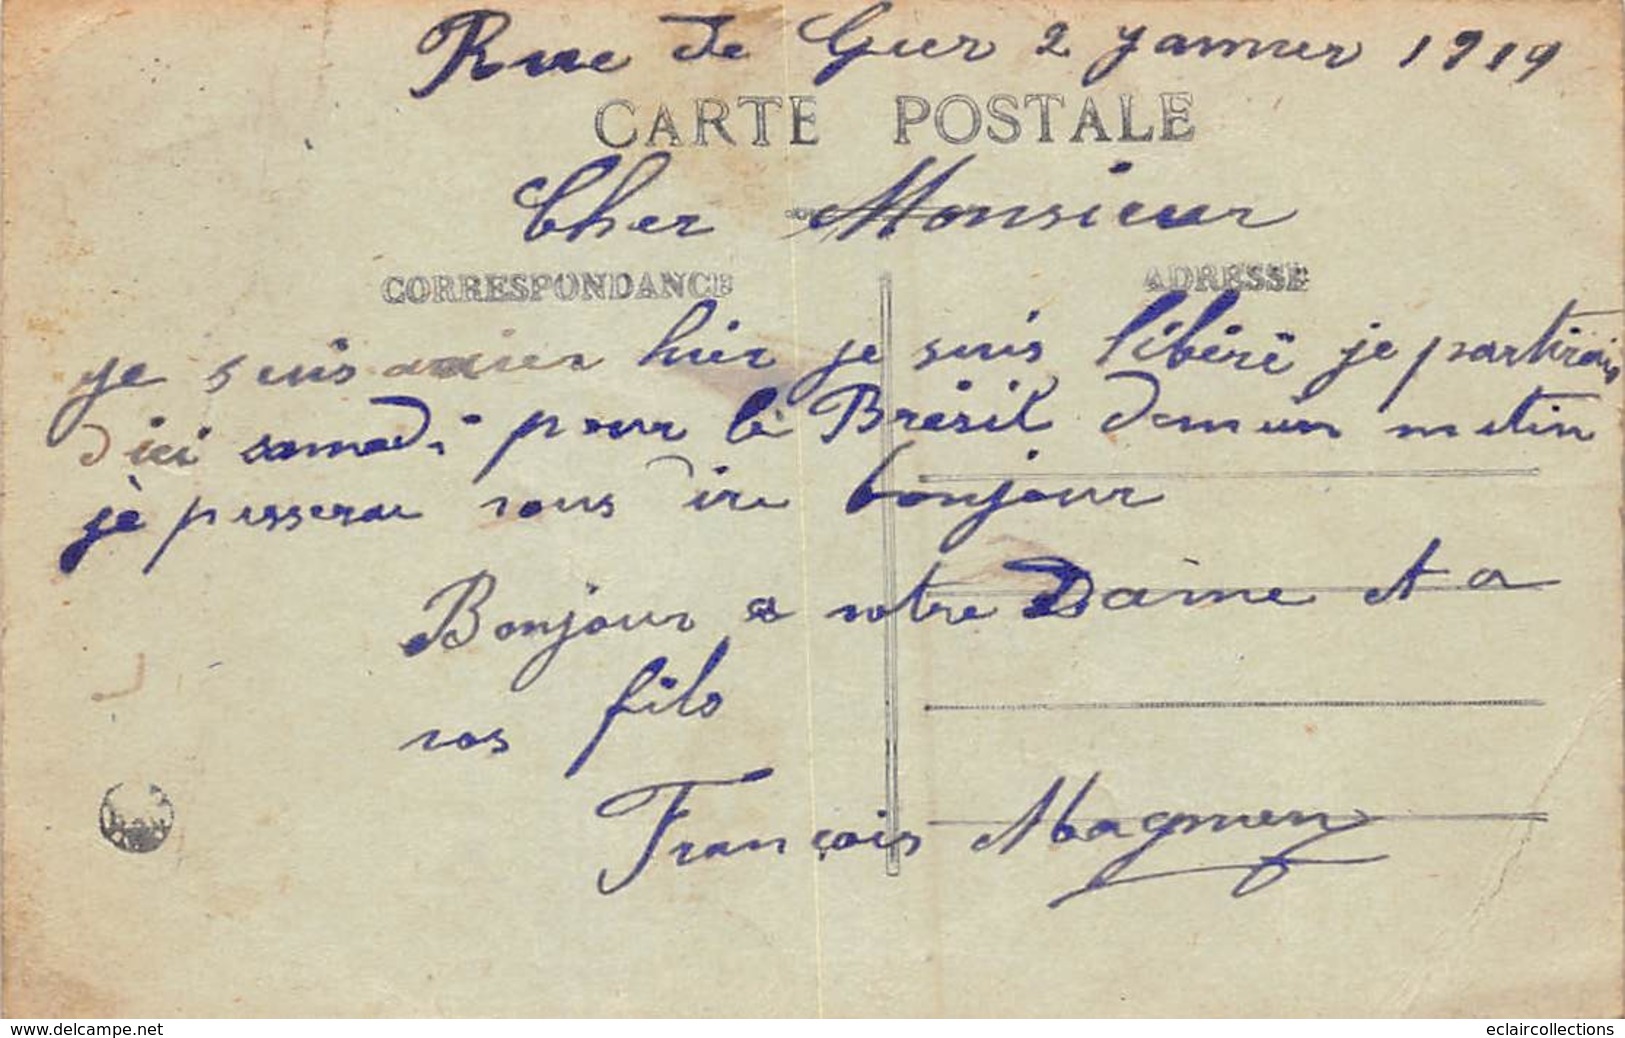 Rue de Guer 2 Janvier 1919
CARTE POSTALE
Cher Monsieur
CORRESPONDANCE ADRESSE
je suis hier je suis libéré je partirais
d'ici samedi pour le Brésil demain matin
je passerai vous dire bonjour
Bonjour a votre Dame et a
vos fils
François Magnen
www.delcampe.net eclaircollections